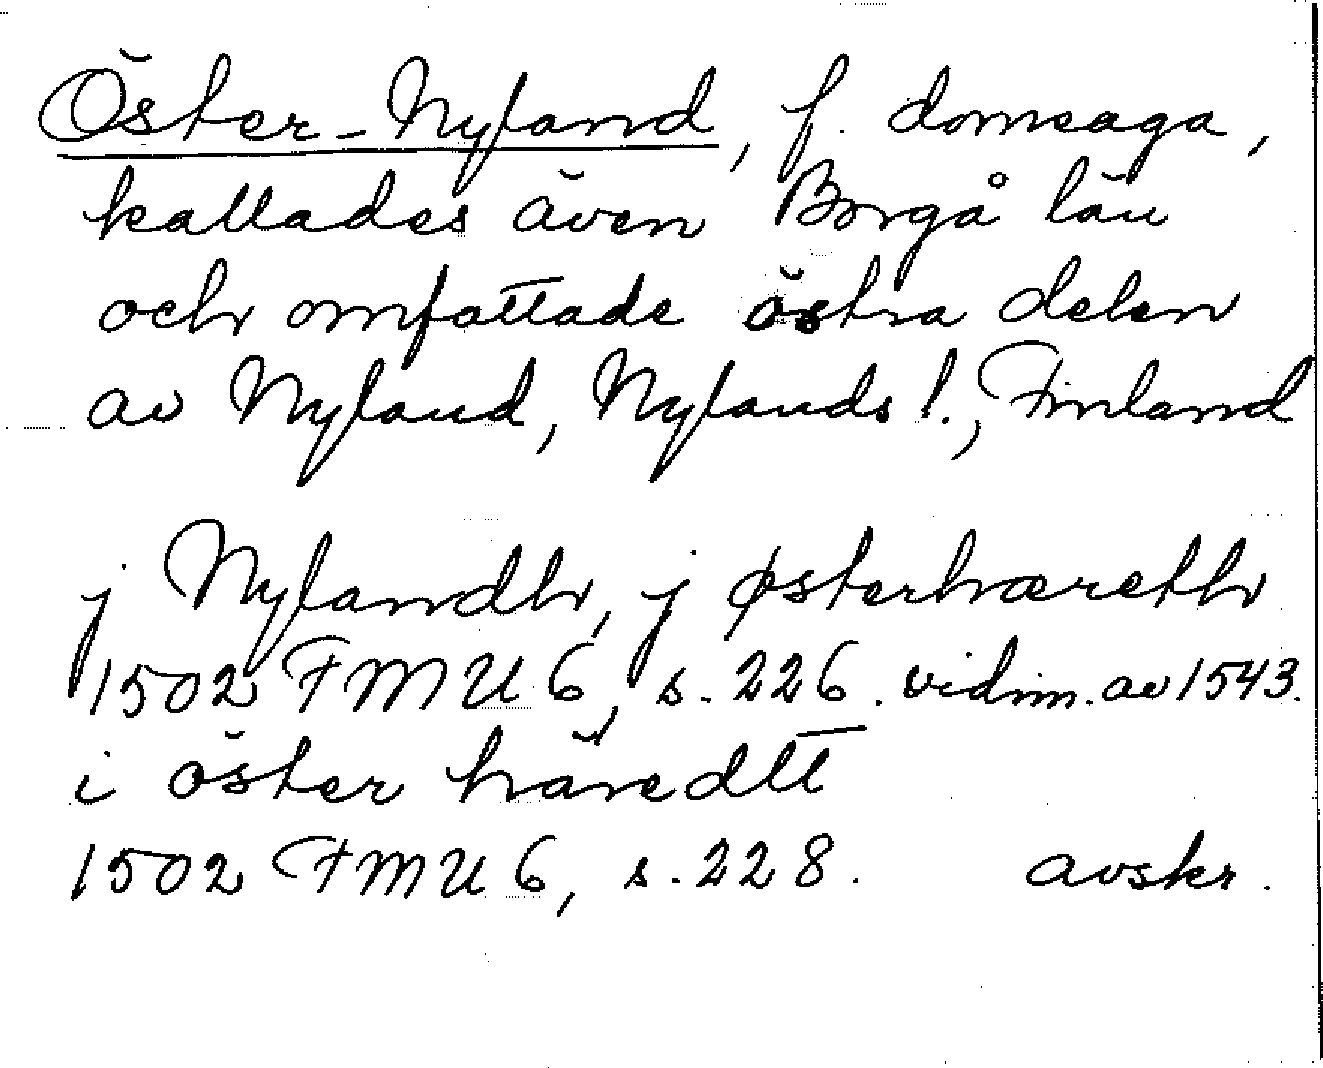 Öster-Nyland, f. domsaga,
kallades även Borgå län
och omfattade östra delen
av Nyland, Nylands l., Finland
j Nylandh, j østerhæreth
1502 FMU 6, s. 226. vidim. av 1543.
i öster häredtt
1502 FMU 6, s. 228. avskr.